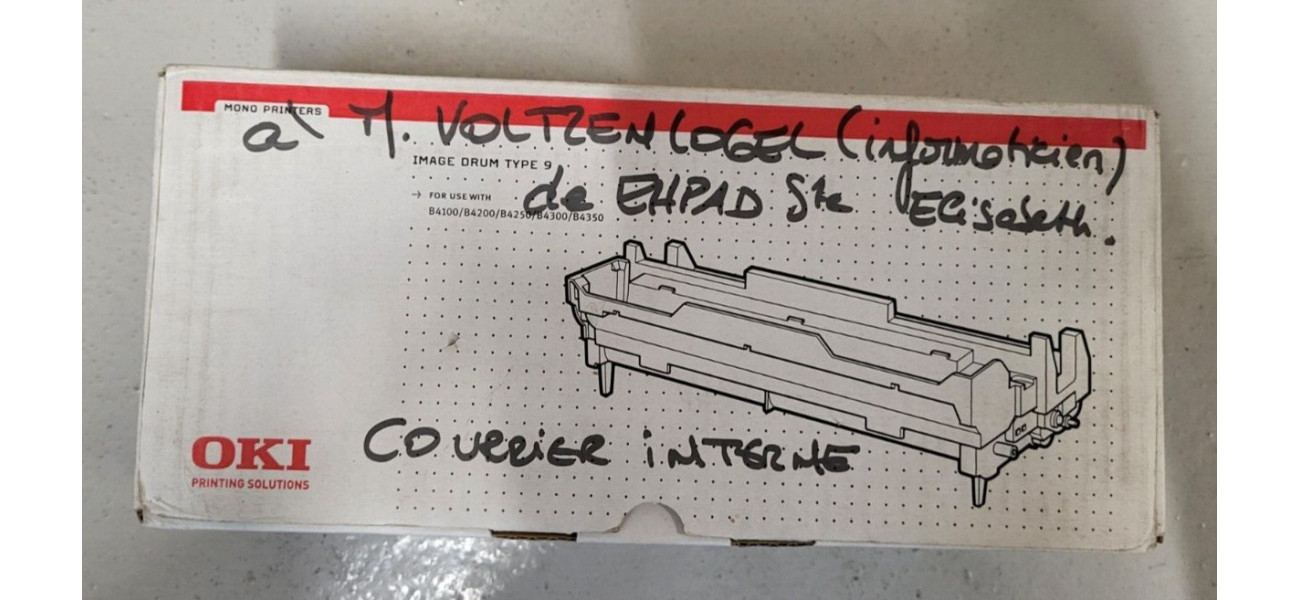 MONO PRINTERS
à M. VOLTZENLOGEL (informaticien)
IMAGE DRUM TYPE 9
de EHPAD Ste Elisabeth.
→ FOR USE WITH
B4100/B4200/B4250/B4300/B4350
COURRIER INTERNE
OKI
PRINTING SOLUTIONS